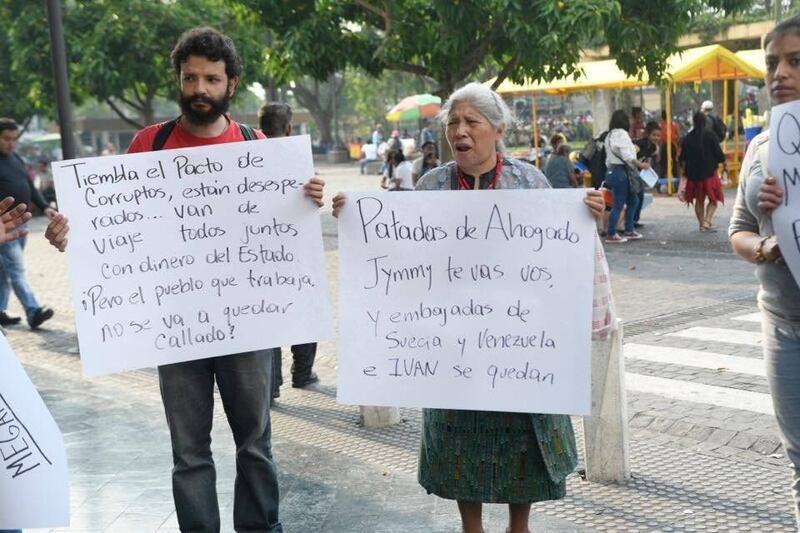 Tiembla el Pacto de
Corruptos, están desespe-
rados... van de
viaje todos juntos
con dinero del Estado.
¡Pero el pueblo que trabaja,
no se va a quedar
callado?
Patadas de Ahogado
Jymmy te vas vos,
y embajadas de
Suecia y Venezuela
e IVAN se quedan